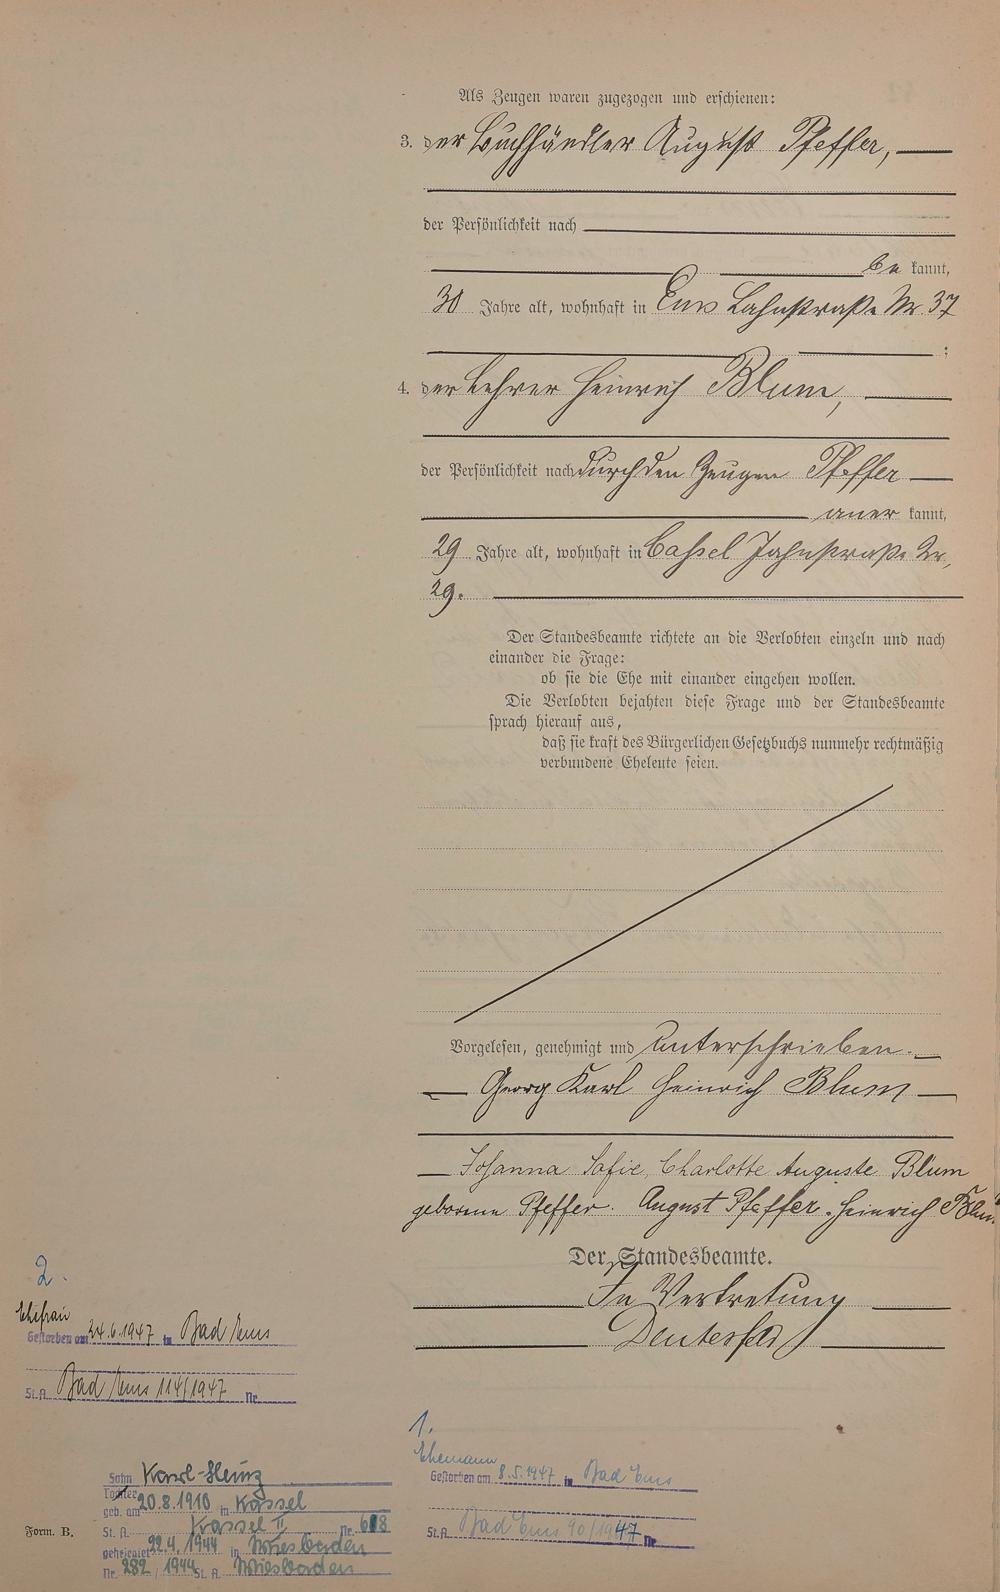 Als Zeugen waren zugezogen und erschienen:
3. der Buchhändler August Pfeffer,
der Persönlichkeit nach
be kannt,
30 Jahre alt, wohnhaft in Ems Lahnstraße Nr 37
;
4. der Lehrer Heinrich Blum,
der Persönlichkeit nach durch den Zeugen Pfeffer
aner kannt,
29 Jahre alt, wohnhaft in Cassel Jahnstraße Nr.
29.
Der Standesbeamte richtete an die Verlobten einzeln und nach
einander die Frage:
ob sie die Ehe mit einander eingehen wollen.
Die Verlobten bejahten diese Frage und der Standesbeamte
sprach hierauf aus,
daß sie kraft des Bürgerlichen Gesetzbuchs nunmehr rechtmäßig
verbundene Eheleute seien.
Vorgelesen, genehmigt und unterschrieben.
Georg Karl Heinrich Blum
Johanna Sofie Charlotte Auguste Blum
geborene Pfeffer. August Pfeffer. Heinrich Blum
Der Standesbeamte.
In Vertretung
2.
Ehefrau
Gestorben am 24.6.1947 in Bad Ems
St.A. Bad Ems 114/1947 Nr.
1.
Ehemann
Gestorben am 8.5.1947 in Bad Ems
St.A. Bad Ems 90/1947 Nr.
Sohn Karl-Heinz
Tochter
geb. am 20.8.1910 in Kassel
St. A. Kassel II Nr. 618
geheiratet 22.4.1944 in Wiesbaden
Nr. 282 / 1944 St. A. Wiesbaden
Form. B.